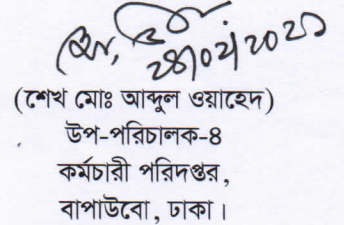 ২৪/০২/২০২১
(শেখ মোঃ আব্দুল ওয়াহেদ)
উপ-পরিচালক-৪
কর্মচারী পরিদপ্তর,
বাপাউবো, ঢাকা।